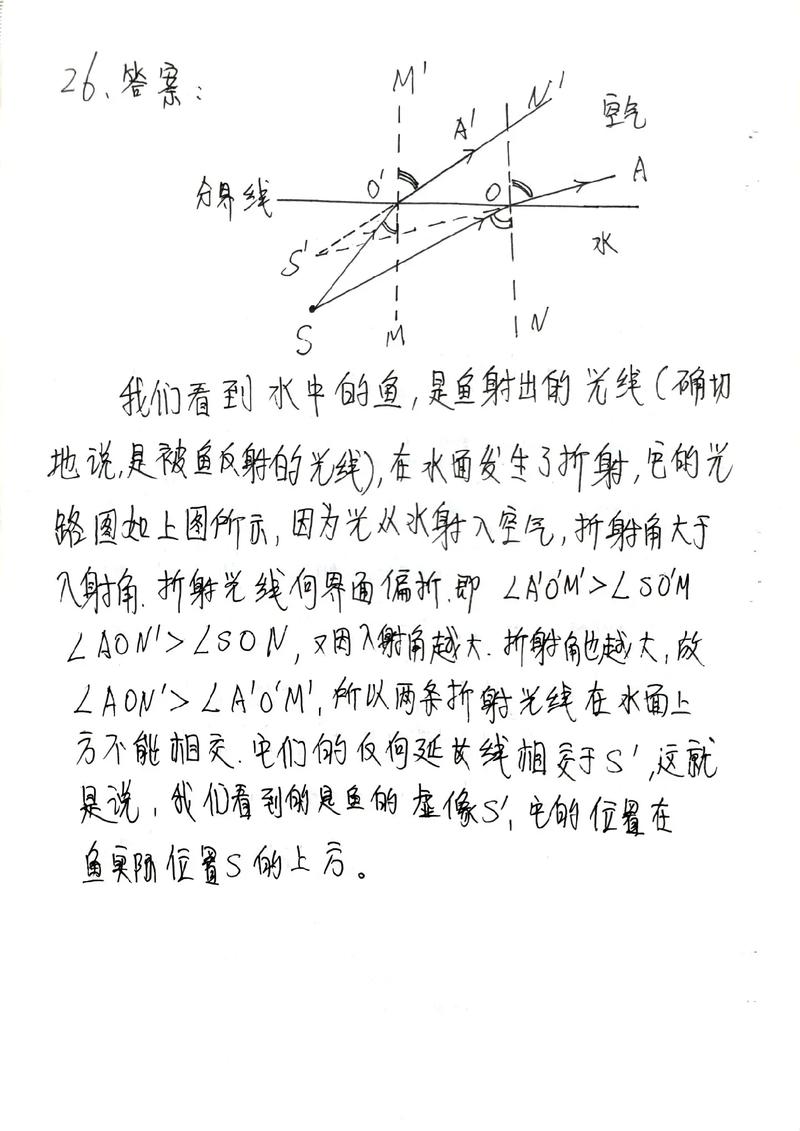 26、答案：
M'
N'
A'
空气
A
O'
O
分界线
S'
水
S
M
N
我们看到水中的鱼，是鱼射出的光线（确切
地说，是被鱼反射的光线），在水面发生了折射，它的光
路图如上图所示，因为光从水射入空气，折射角大于
入射角．折射光线向界面偏折．即 ∠A'O'M'>∠SO'M
∠AON'>∠SON，又因入射角越大．折射角也越大，故
∠AON'>∠A'O'M'，所以两条折射光线在水面上
方不能相交．它们的反向延长线相交于S'，这就
是说，我们看到的是鱼的虚像S'，它的位置在
鱼实际位置S的上方。